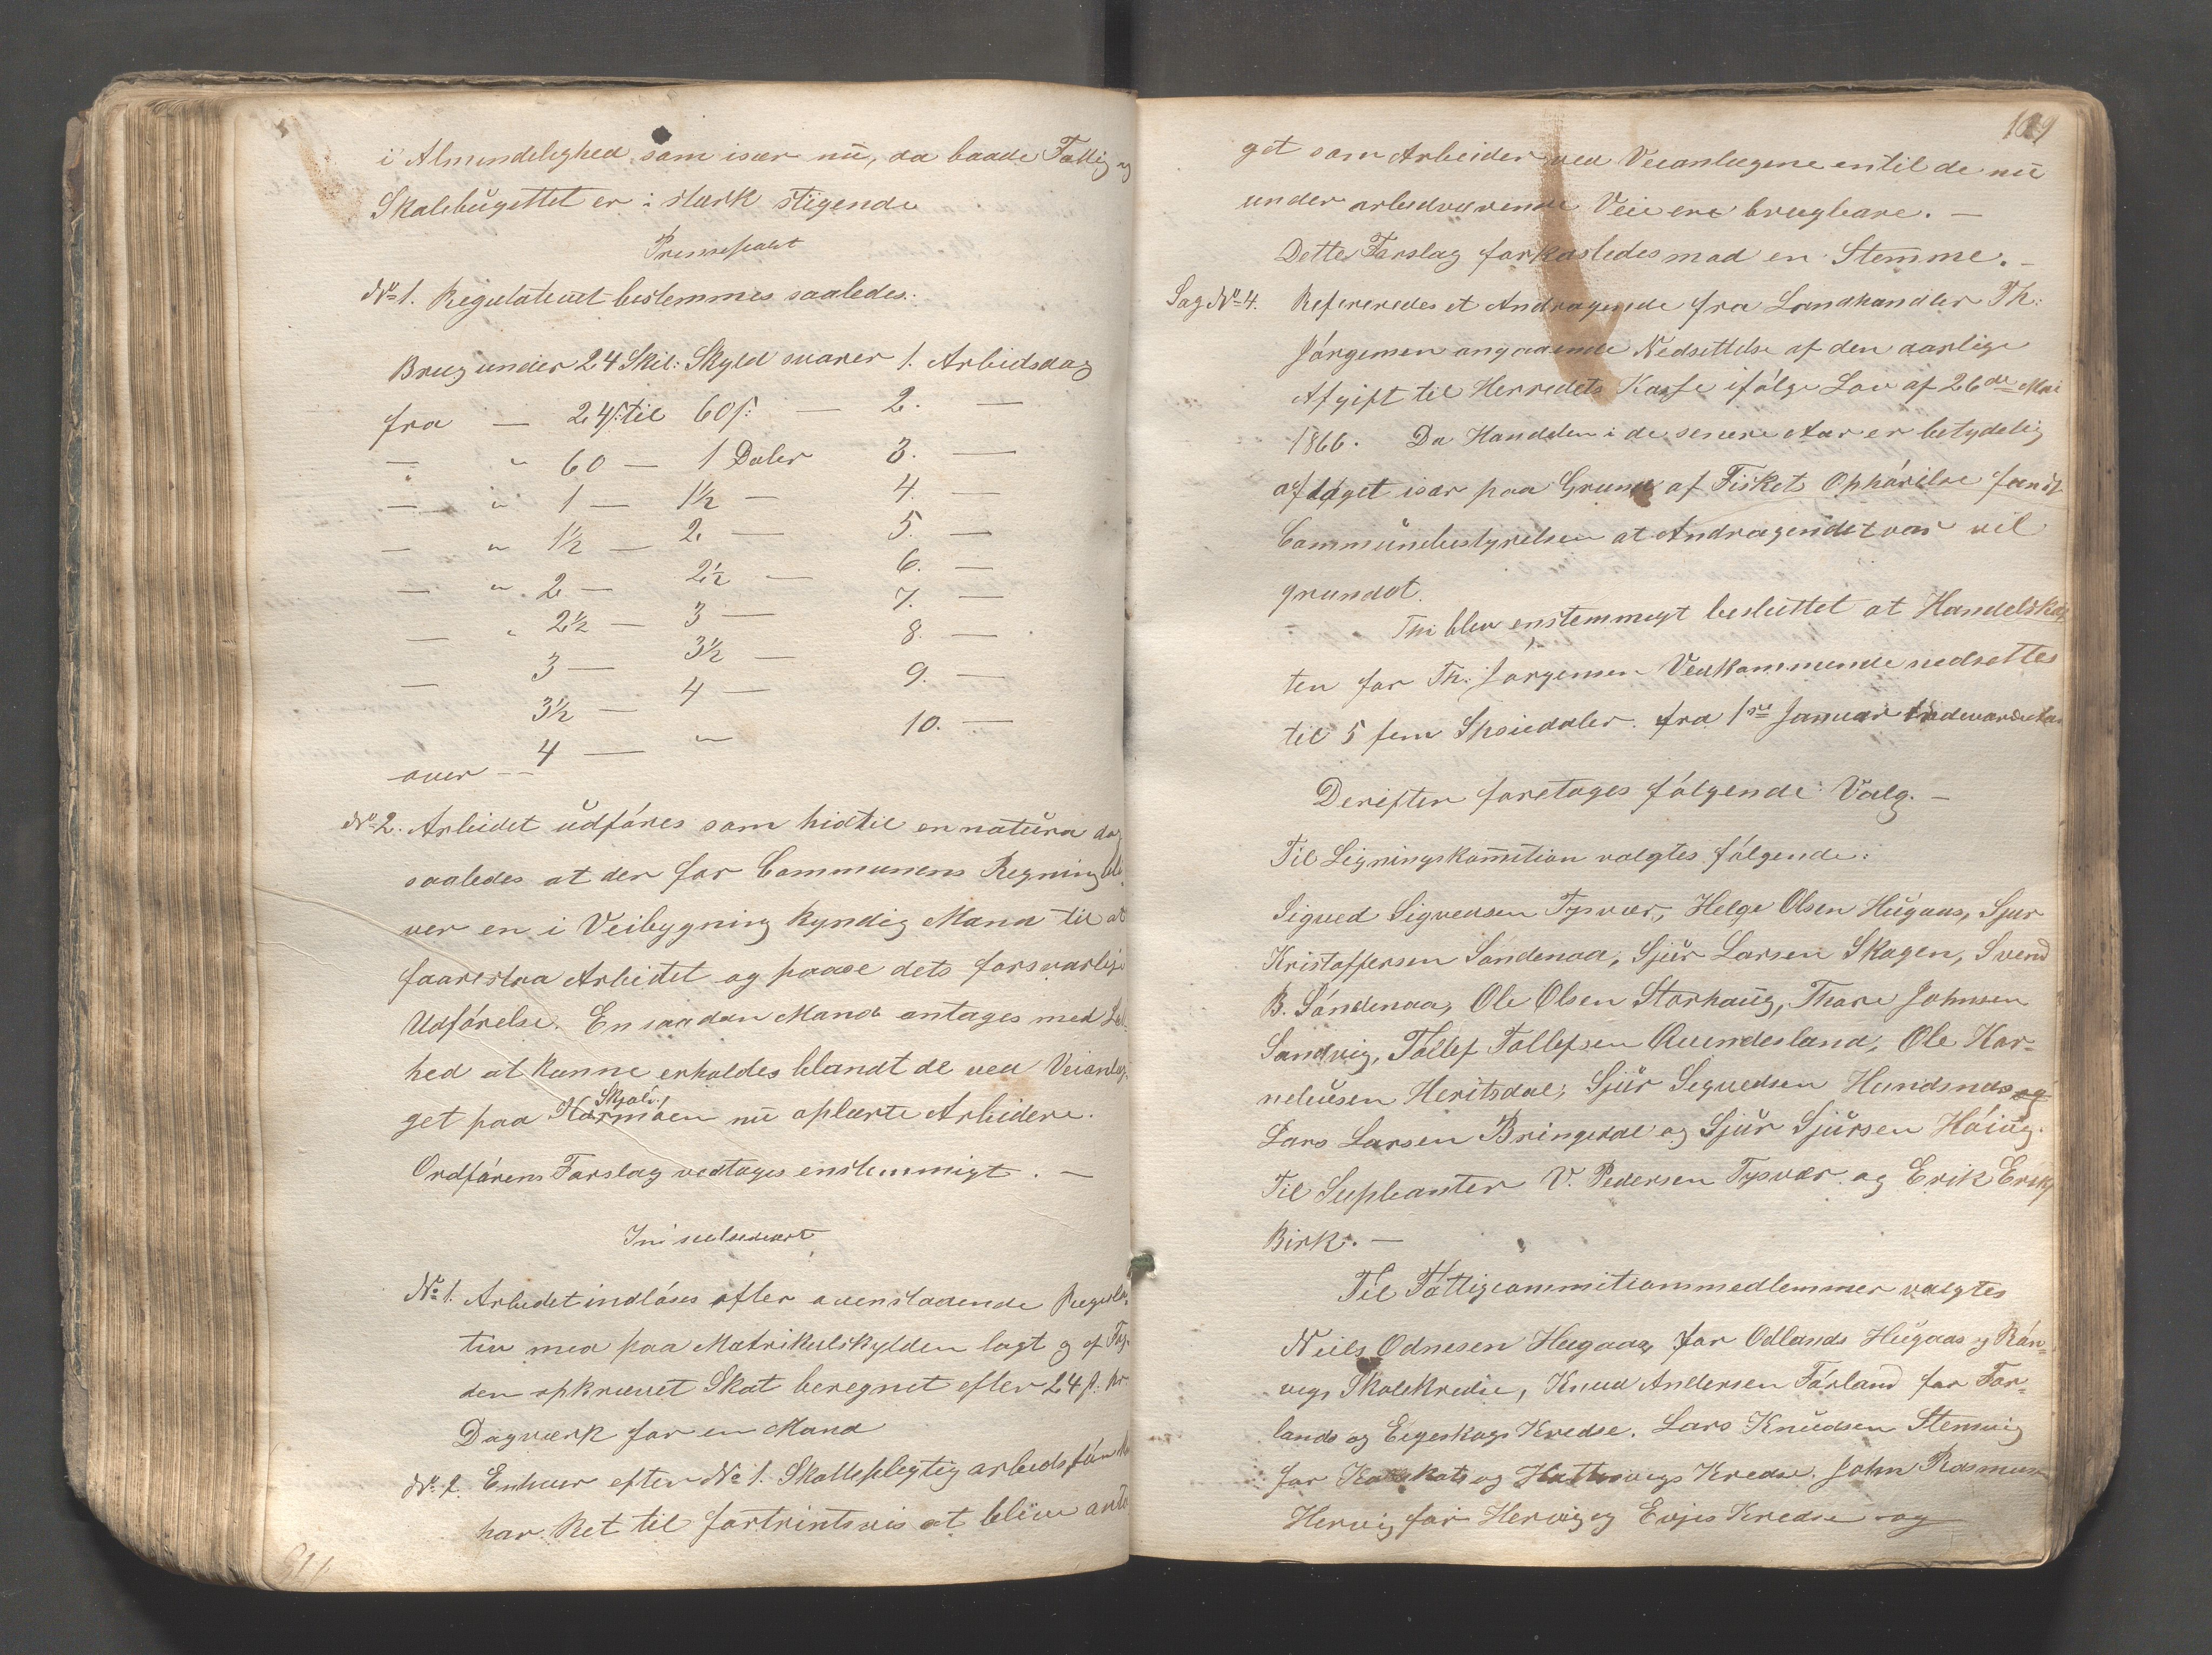 i Almindelighed som især nu, da baade Fattig og
Skolebugettet er i stærk stigende
No 1. Regulativet bestemmes saaledes:
Brug under 24 Skil: Skyld svarer 1. Arbeidsdag
fra — 24 s: til 60 s: — 2. —
— " 60 — 1 Daler 3. —
— " 1 — 1½ — 4. —
— " 1½ — 2 — 5. —
— " 2 — 2½ — 6. —
— " 2½ — 3 — 7. —
— 3 — 3½ — 8. —
3½ — 4 — 9. —
over — 4 — " 10. —
No 2. Arbeidet udføres som hidtil en natura dog
saaledes at der for Communens Regning bli
ver en i Veibygning kyndig Mand til at
forestaa Arbeidet og paase dets forsvarlige
Udførelse. En saadan Mand antages med Let
hed at kunne erholdes blandt de ved Veianlæg
get paa Skjold Karmøen nu oplærte Arbeidere.
Ordførens Forslag vedtoges enstemmigt. —
No 1. Arbeidet indløses efter ovenstaaende Regula
tiv med paa Matrikulskylden lagt og af Fog
den opkrævet Skat beregnet efter 24 s: pr
Dagværk for en Mand
No 2. Enhver efter No 1. Skattepligtig arbeidsfør
har Ret til fortrinsvis at blive anta
109
get som Arbeider ved Veianlægene intil de nu
under arbeidværende Veie ere brugbare. —
Dette Forslag forkastedes mod en Stemme. —
Sag No 4. Refereredes et Andragende fra Landhandler Th:
Jørgensen angaaende Nedsettelse af den aarlige
Afgift til Herredets Kasse ifølge Lov af 26de Mai
1866. Da Handelen i de senere Aar er betydelig
aftaget især paa Grund af Fiskets Ophørelse fandt
Communebestyrelsen at Andragendet var vel
grundet.
Thi blev enstemmigt besluttet at Handelskat
ten for Th. Jørgensen Vedkommende nedsettes
til 5 fem Speciedaler fra 1ste Januar indeværende Aar
Derefter foretoges følgende Valg. —
Til Ligningskommition valgtes følgende:
Sigved Sigvedsen Tysvær, Helge Olsen Hugaas, Sjur
Kristoffersen Søndenaa, Sjur Larsen Skogen, Svend
B. Søndenaa, Ole Olsen Storhaug, Thore Johnsen
Sandvig, Tollef Tollefsen Qvindesland, Ole Kor=
neliusen Heritsdal, Sjur Sigvedsen Hundsnes og
Lars Larsen Bringedal og Sjur Sjursen Høiug.
Til Supleanter V. Pedersen Tysvær og Erik Eriks
Birk. —
Til Fattigcommitionmedlemmer valgtes
Neils Odnesen Hugaas for Odlands Hugaas og Røn=
vigs Skolekredse, Knud Andersen Førland for Før=
lands og Eigeskogs Kredse. Lars Knudsen Stemvig
for og Hattevigs Kredse. John Rasmus
Hervig for Hervig og Evjes Kredse og